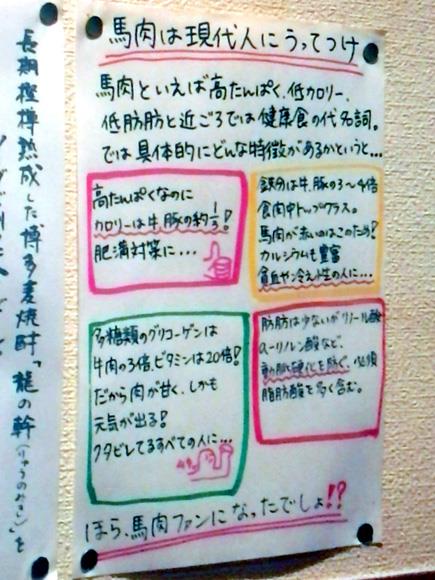 馬肉は現代人にうってつけ
馬肉といえば高たんぱく、低カロリー、
低脂肪と近ごろでは健康食の代名詞。
では具体的にどんな特徴があるかというと…
高たんぱくなのに
カロリーは牛、豚の約1/3!
肥満対策に…
鉄分は牛、豚の3〜4倍
食肉中トップクラス。
馬肉が赤いのはこのため!
カルシウムも豊富
貧血や冷え性の人に…
多糖類のグリコーゲンは
牛肉の3倍、ビタミンは20倍!
だから肉が甘く、しかも
元気が出る!
クタビレてるすべての人に…
脂肪は少ないがリノール酸
α-リノレン酸など、
動脈硬化を防ぐ、必須
脂肪酸を多く含む。
ほら、馬肉ファンになったでしょ!?
長期樫樽熟成した、博多麦焼酎「龍の幹(りゅうのみき)」を